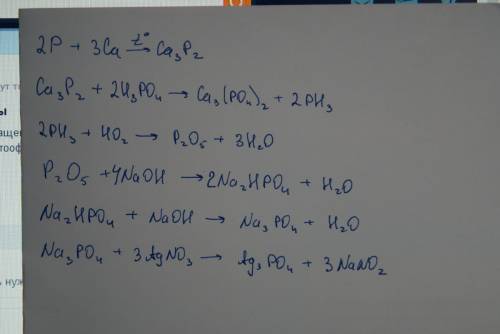 2P + 3Ca t°→ Ca₃P₂
Ca₃P₂ + 2H₃PO₄ → Ca₃(PO₄)₂ + 2PH₃
2PH₃ + HO₂ → P₂O₅ + 3H₂O
P₂O₅ + 4NaOH → 2Na₂HPO₄ + H₂O
Na₂HPO₄ + NaOH → Na₃PO₄ + H₂O
Na₃PO₄ + 3AgNO₃ → Ag₃PO₄ + 3NaNO₂